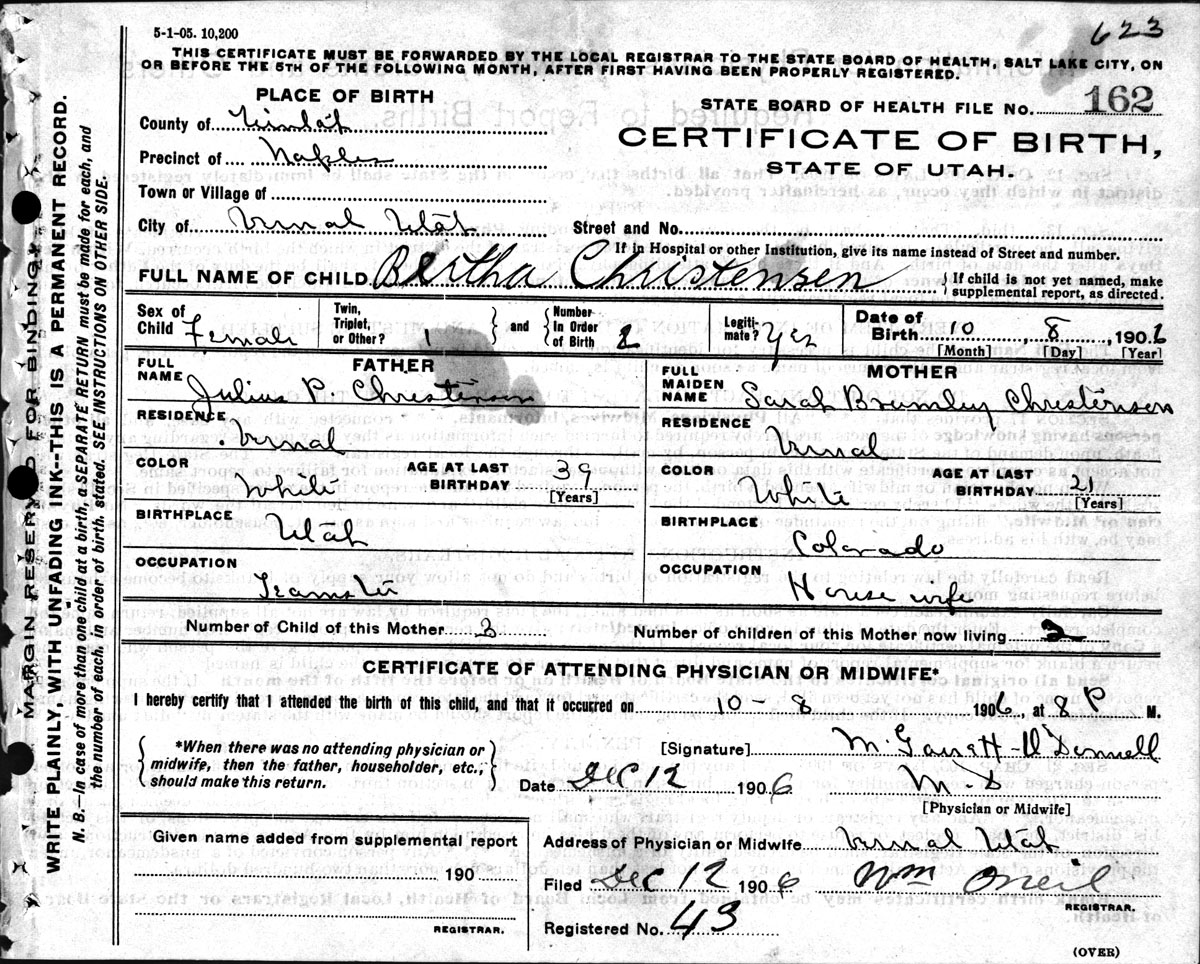 5-1-05. 10,200
623
THIS CERTIFICATE MUST BE FORWARDED BY THE LOCAL REGISTRAR TO THE STATE BOARD OF HEALTH, SALT LAKE CITY, ON
OR BEFORE THE 5TH OF THE FOLLOWING MONTH, AFTER FIRST HAVING BEEN PROPERLY REGISTERED.
PLACE OF BIRTH
STATE BOARD OF HEALTH FILE No. 162
County of Uintah
CERTIFICATE OF BIRTH,
Precinct of Naples
STATE OF UTAH.
Town or Village of
City of Vernal Utah Street and No.
If in Hospital or other Institution, give its name instead of Street and number.
FULL NAME OF CHILD Bertha Christensen { If child is not yet named, make
supplemental report, as directed.
Sex of Child Female Twin, Triplet, or Other? 1 } and { Number In Order of Birth 2 Legiti-mate? Yes Date of Birth 10 8 1906
[Month] [Day] [Year]
FATHER
FULL NAME Julius P. Christensen
MOTHER
FULL MAIDEN NAME Sarah Christensen
RESIDENCE Vernal
RESIDENCE Vernal
COLOR White AGE AT LAST BIRTHDAY 39 [Years]
COLOR White AGE AT LAST BIRTHDAY 21 [Years]
BIRTHPLACE Utah
BIRTHPLACE Colorado
OCCUPATION Teamster
OCCUPATION House wife
Number of Child of this Mother Number of children of this Mother now living 2
CERTIFICATE OF ATTENDING PHYSICIAN OR MIDWIFE*
I hereby certify that I attended the birth of this child, and that it occured on 10 - 8 1906, at 8 P M.
{ *When there was no attending physician or
midwife, then the father, householder, etc.,
should make this return. }
[Signature] M. Garrett-O'Donnell
Date Dec 12 1906 M-D
[Physician or Midwife]
Given name added from supplemental report
190
REGISTRAR.
Address of Physician or Midwife Vernal Utah
Filed Dec 12 1906 Wm Oneil
REGISTRAR.
Registered No. 43
(OVER)
MARGIN RESERVED FOR BINDING.
WRITE PLAINLY, WITH UNFADING INK--THIS IS A PERMANENT RECORD.
N. B.—In case of more than one child at a birth, a SEPARATE RETURN must be made for each, and
the number of each, in order of birth, stated. SEE INSTRUCTIONS ON OTHER SIDE.